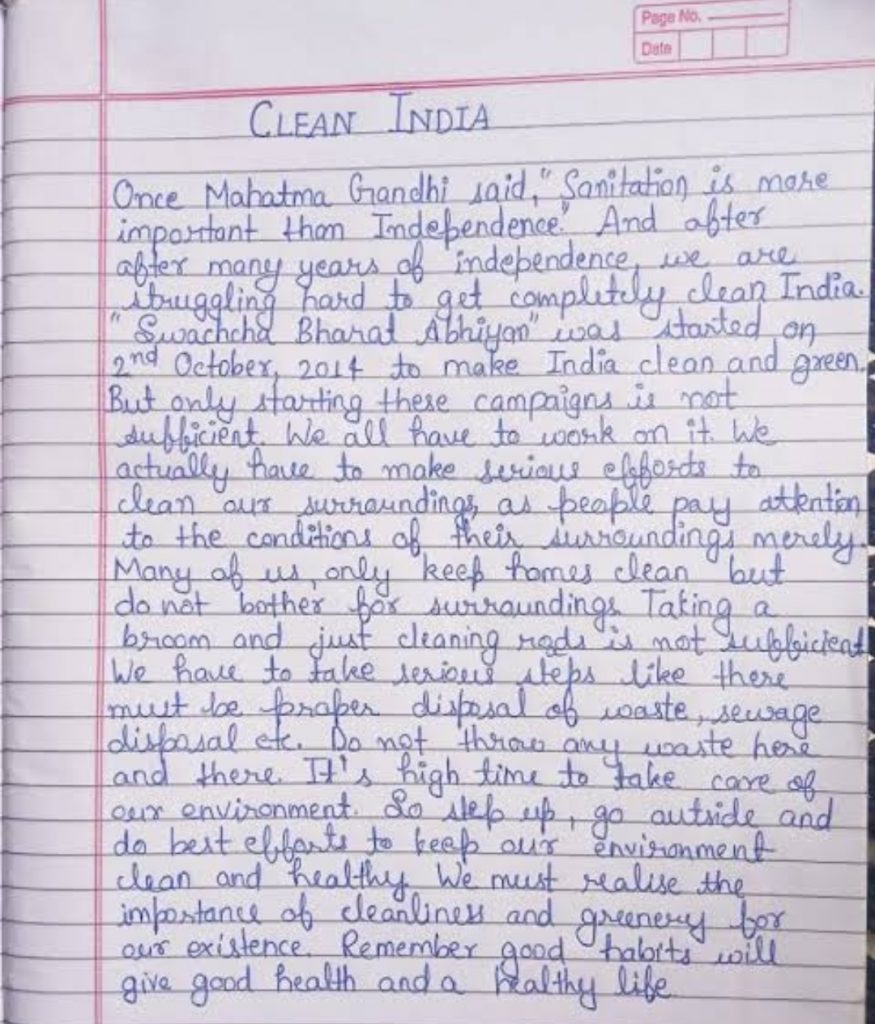 Page No.
Date
CLEAN INDIA
Once Mahatma Gandhi said, "Sanitation is more
important than Independence." And after
after many years of independence, we are
struggling hard to get completely clean India.
"Swachcha Bharat Abhiyan" was started on
2nd October, 2014 to make India clean and green.
But only starting these campaigns is not
sufficient. We all have to work on it. We
actually have to make serious efforts to
clean our surroundings, as people pay attention
to the conditions of their surroundings merely.
Many of us, only keep homes clean but
do not bother for surroundings. Taking a
broom and just cleaning rods is not sufficient.
We have to take serious steps like there
must be proper disposal of waste, sewage
disposal etc. Do not throw any waste here
and there. It's high time to take care of
our environment. So step up, go outside and
do best efforts to keep our environment
clean and healthy. We must realise the
importance of cleanliness and greenery for
our existence. Remember good habits will
give good health and a healthy life